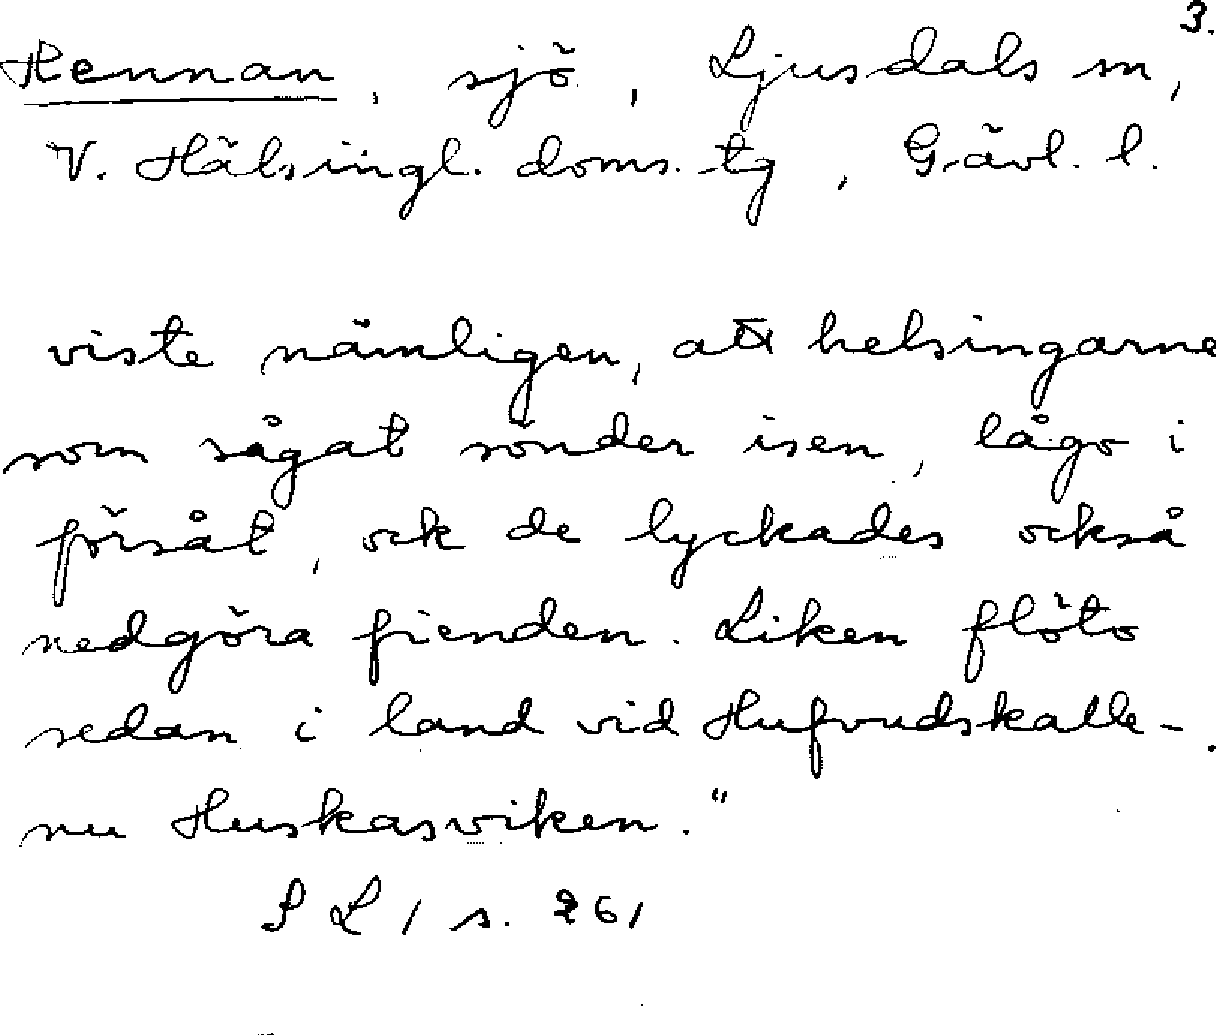 3.
Hennan, sjö, Ljusdals sn,
V. Hälsingl. doms.-tg, Gävl. l.
viste nämligen, att helsingarne
som sågat sönder isen, lågo i
försåt, ock de lyckades också
nedgöra fienden. Liken flöto
sedan i land vid Hufvudskalle-
nu Huskasviken."
S L 1 s. 261